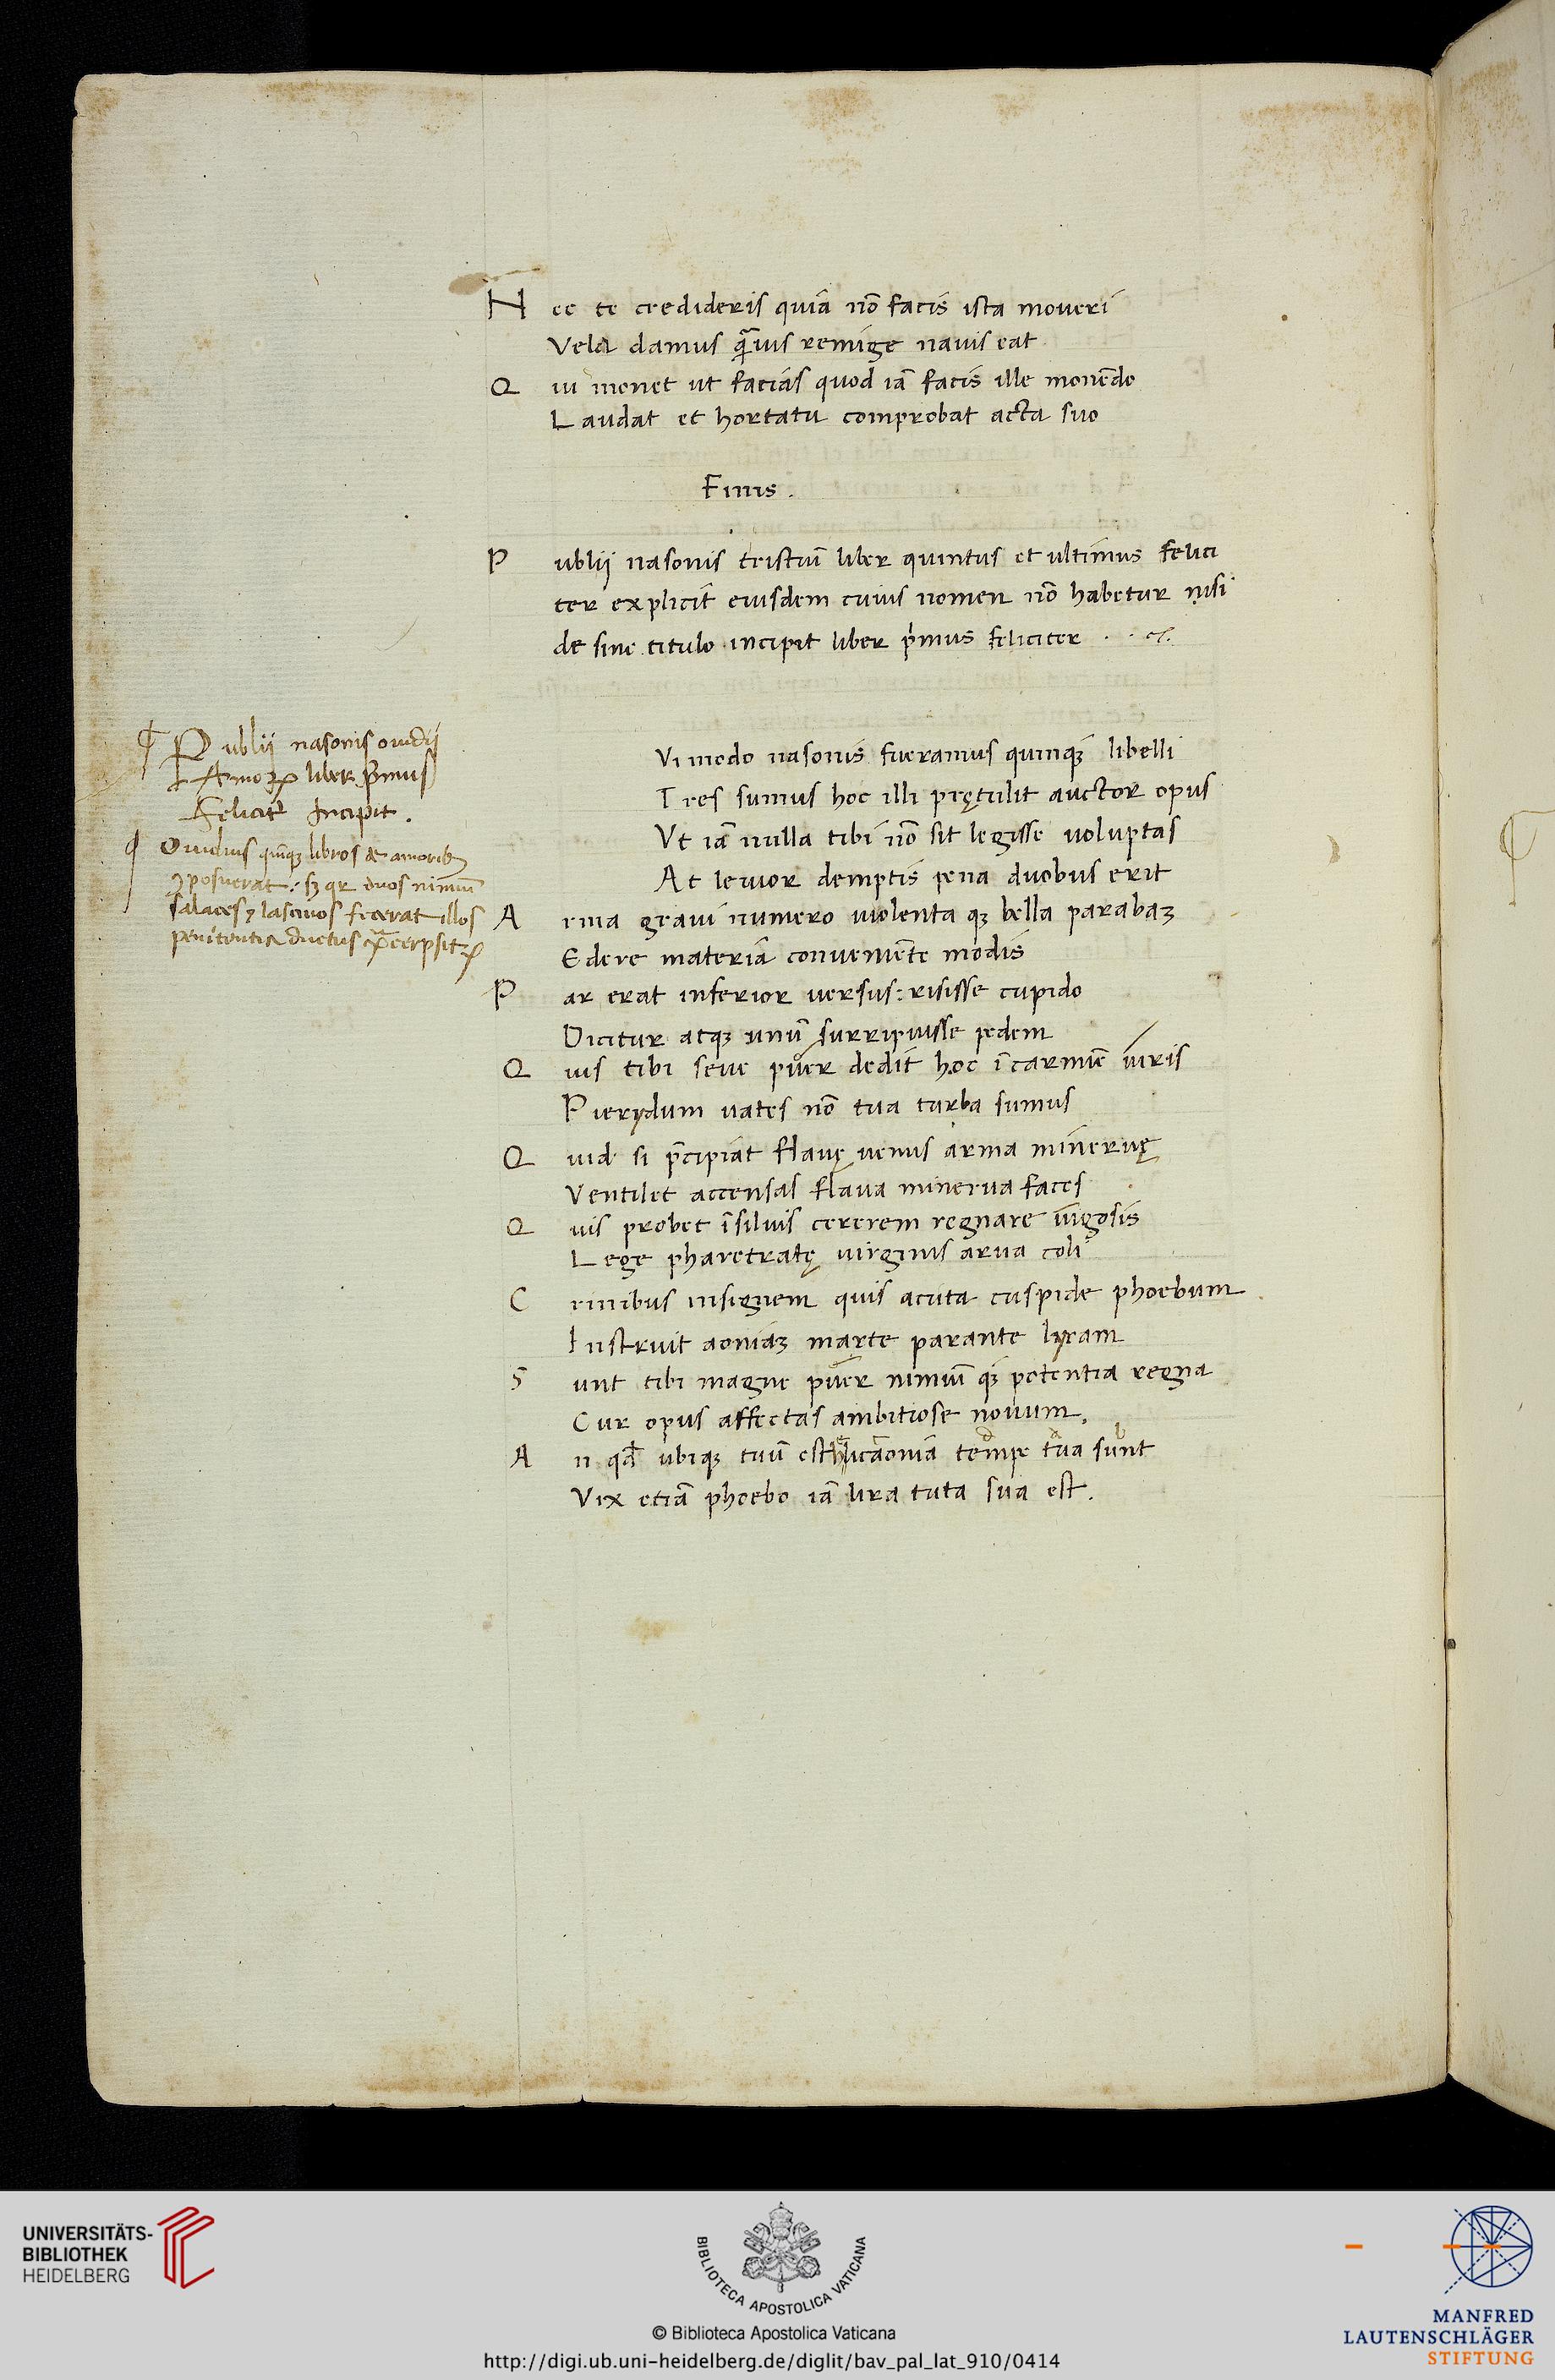 Nec te credideris quia nō facis ista moueri
Vela damus q̄uis remige nauis eat
Qui monet ut facias quod iā facis ille monēdo
Laudat et hortatu comprobat acta suo
Finis.
Publij nasonis tristiū liber quintus et ultimus felici
ter explicit eiusdem cuius nomen nō habetur nisi
de sine titulo incipit liber p̄mus feliciter
¶ Publij nasonis ouidij
Amoꝝ liber p̄mus
Felicit̄ Incipit.
¶ Ouidius quīqꝫ libros de amoribꝫ
ꝯposuerat: sꝫ qr duos nimiū
salaces ⁊ lasciuos fecerat illos
penitentia ductus
Vi modo nasonis fueramus quinqꝫ libelli
Tres sumus hoc illi prętulit auctor opus
Vt iā nulla tibi nō sit legisse uoluptas
At leuior demptis pena duobus erit
Arma graui numero uiolenta qꝫ bella parabaꝫ
Edere materiā conueniēte modis
Par erat inferior uersus: risisse cupido
Dicitur atqꝫ unū surripuisse pedem
Quis tibi seue puer dedit hoc ī carmīe iuris
Pierydum uates nō tua turba sumus
Quid si p̄cipiat flauę uenus arma mineruę
Ventilet accensas flaua minerua faces
Quis probet ī siluis cererem regnare iūgosis
Lege pharetratę uirginis arua coli
Crinibus insignem quis acuta cuspide phoebum
Instruit aoniaꝫ marte parante lyram
Sunt tibi magne puer nimiū qꝫ potentia regna
Cur opus affectas ambitiose nouum.
An qd̄ ubiqꝫ tuū est helicaoniā tempe tua sunt
Vix etiā phoebo iā lira tuta sua est.
UNIVERSITÄTS-
BIBLIOTHEK
HEIDELBERG
BIBLIOTECA APOSTOLICA VATICANA
© Biblioteca Apostolica Vaticana
http://digi.ub.uni-heidelberg.de/diglit/bav_pal_lat_910/0414
MANFRED
LAUTENSCHLÄGER
STIFTUNG